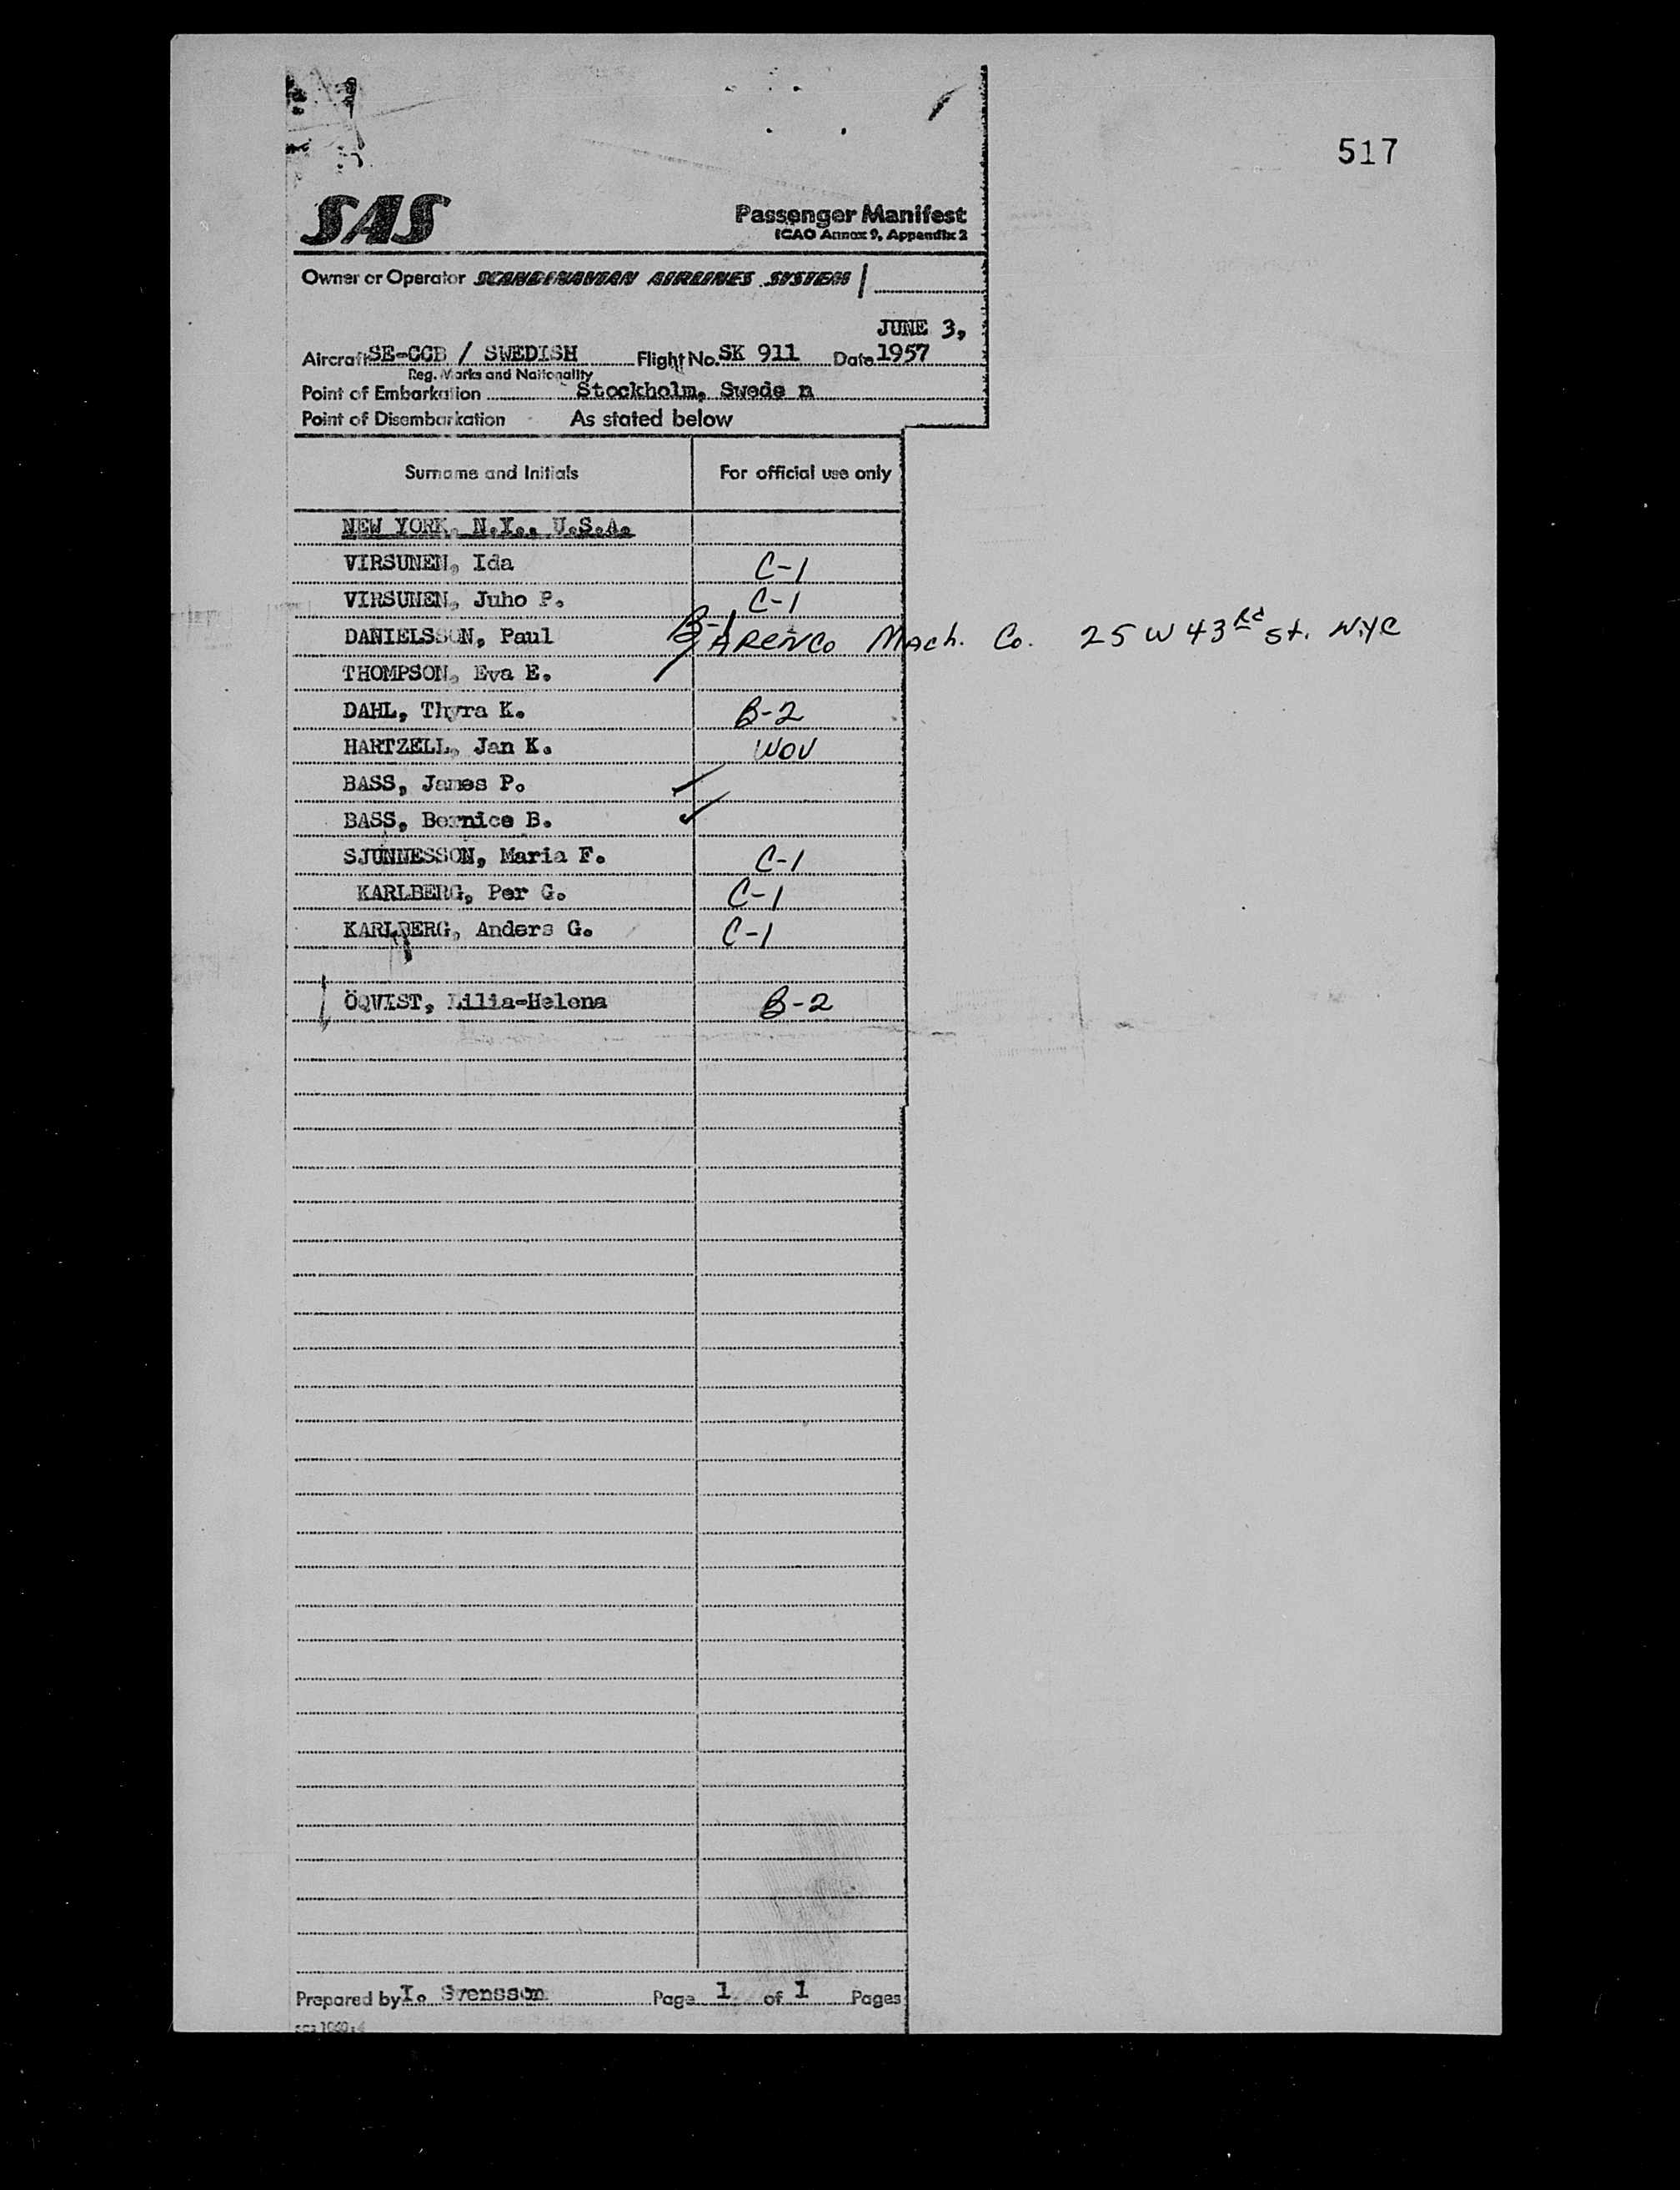 517
SAS
Passenger Manifest
ICAO Annex 9, Appendix 2
Owner or Operator SCANDINAVIAN AIRLINES SYSTEM
JUNE 3,
Aircraft SE-CCB / SWEDISH Flight No. SK 911 Date 1957
Reg. Marks and Nationality
Point of Embarkation Stockholm, Swede n
Point of Disembarkation As stated below
Surname and Initials For official use only
NEW YORK, N.Y., U.S.A.
VIRSUNEN, Ida C-1
VIRSUNEN, Juho P. C-1
DANIELSSON, Paul B-1 ARENCo Mach. Co. 25 W 43rd St. NYC
THOMPSON, Eva E.
DAHL, Thyra K. B-2
HARTZELL, Jan K. WOV
BASS, James P. ✓
BASS, Bernice B. ✓
SJUNNESSON, Maria F. C-1
KARLBERG, Per G. C-1
KARLBERG, Anders G. C-1
ÖQVIST, Lilia-Helena B-2
Prepared by I. Svensson Page 1 of 1 Pages